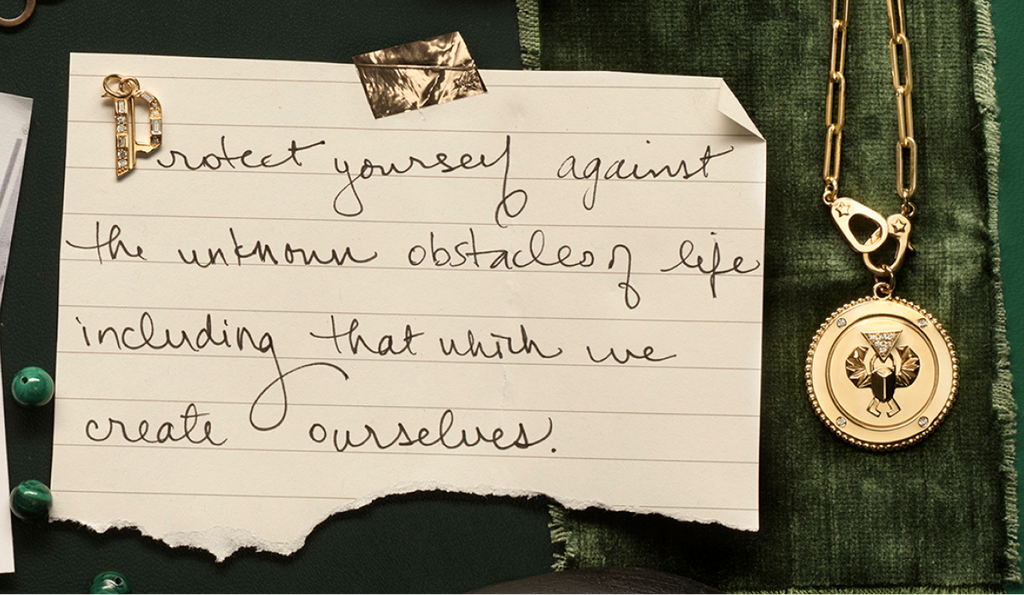 Protect yourself against
the unknown obstacles of life
including that which we
create ourselves.